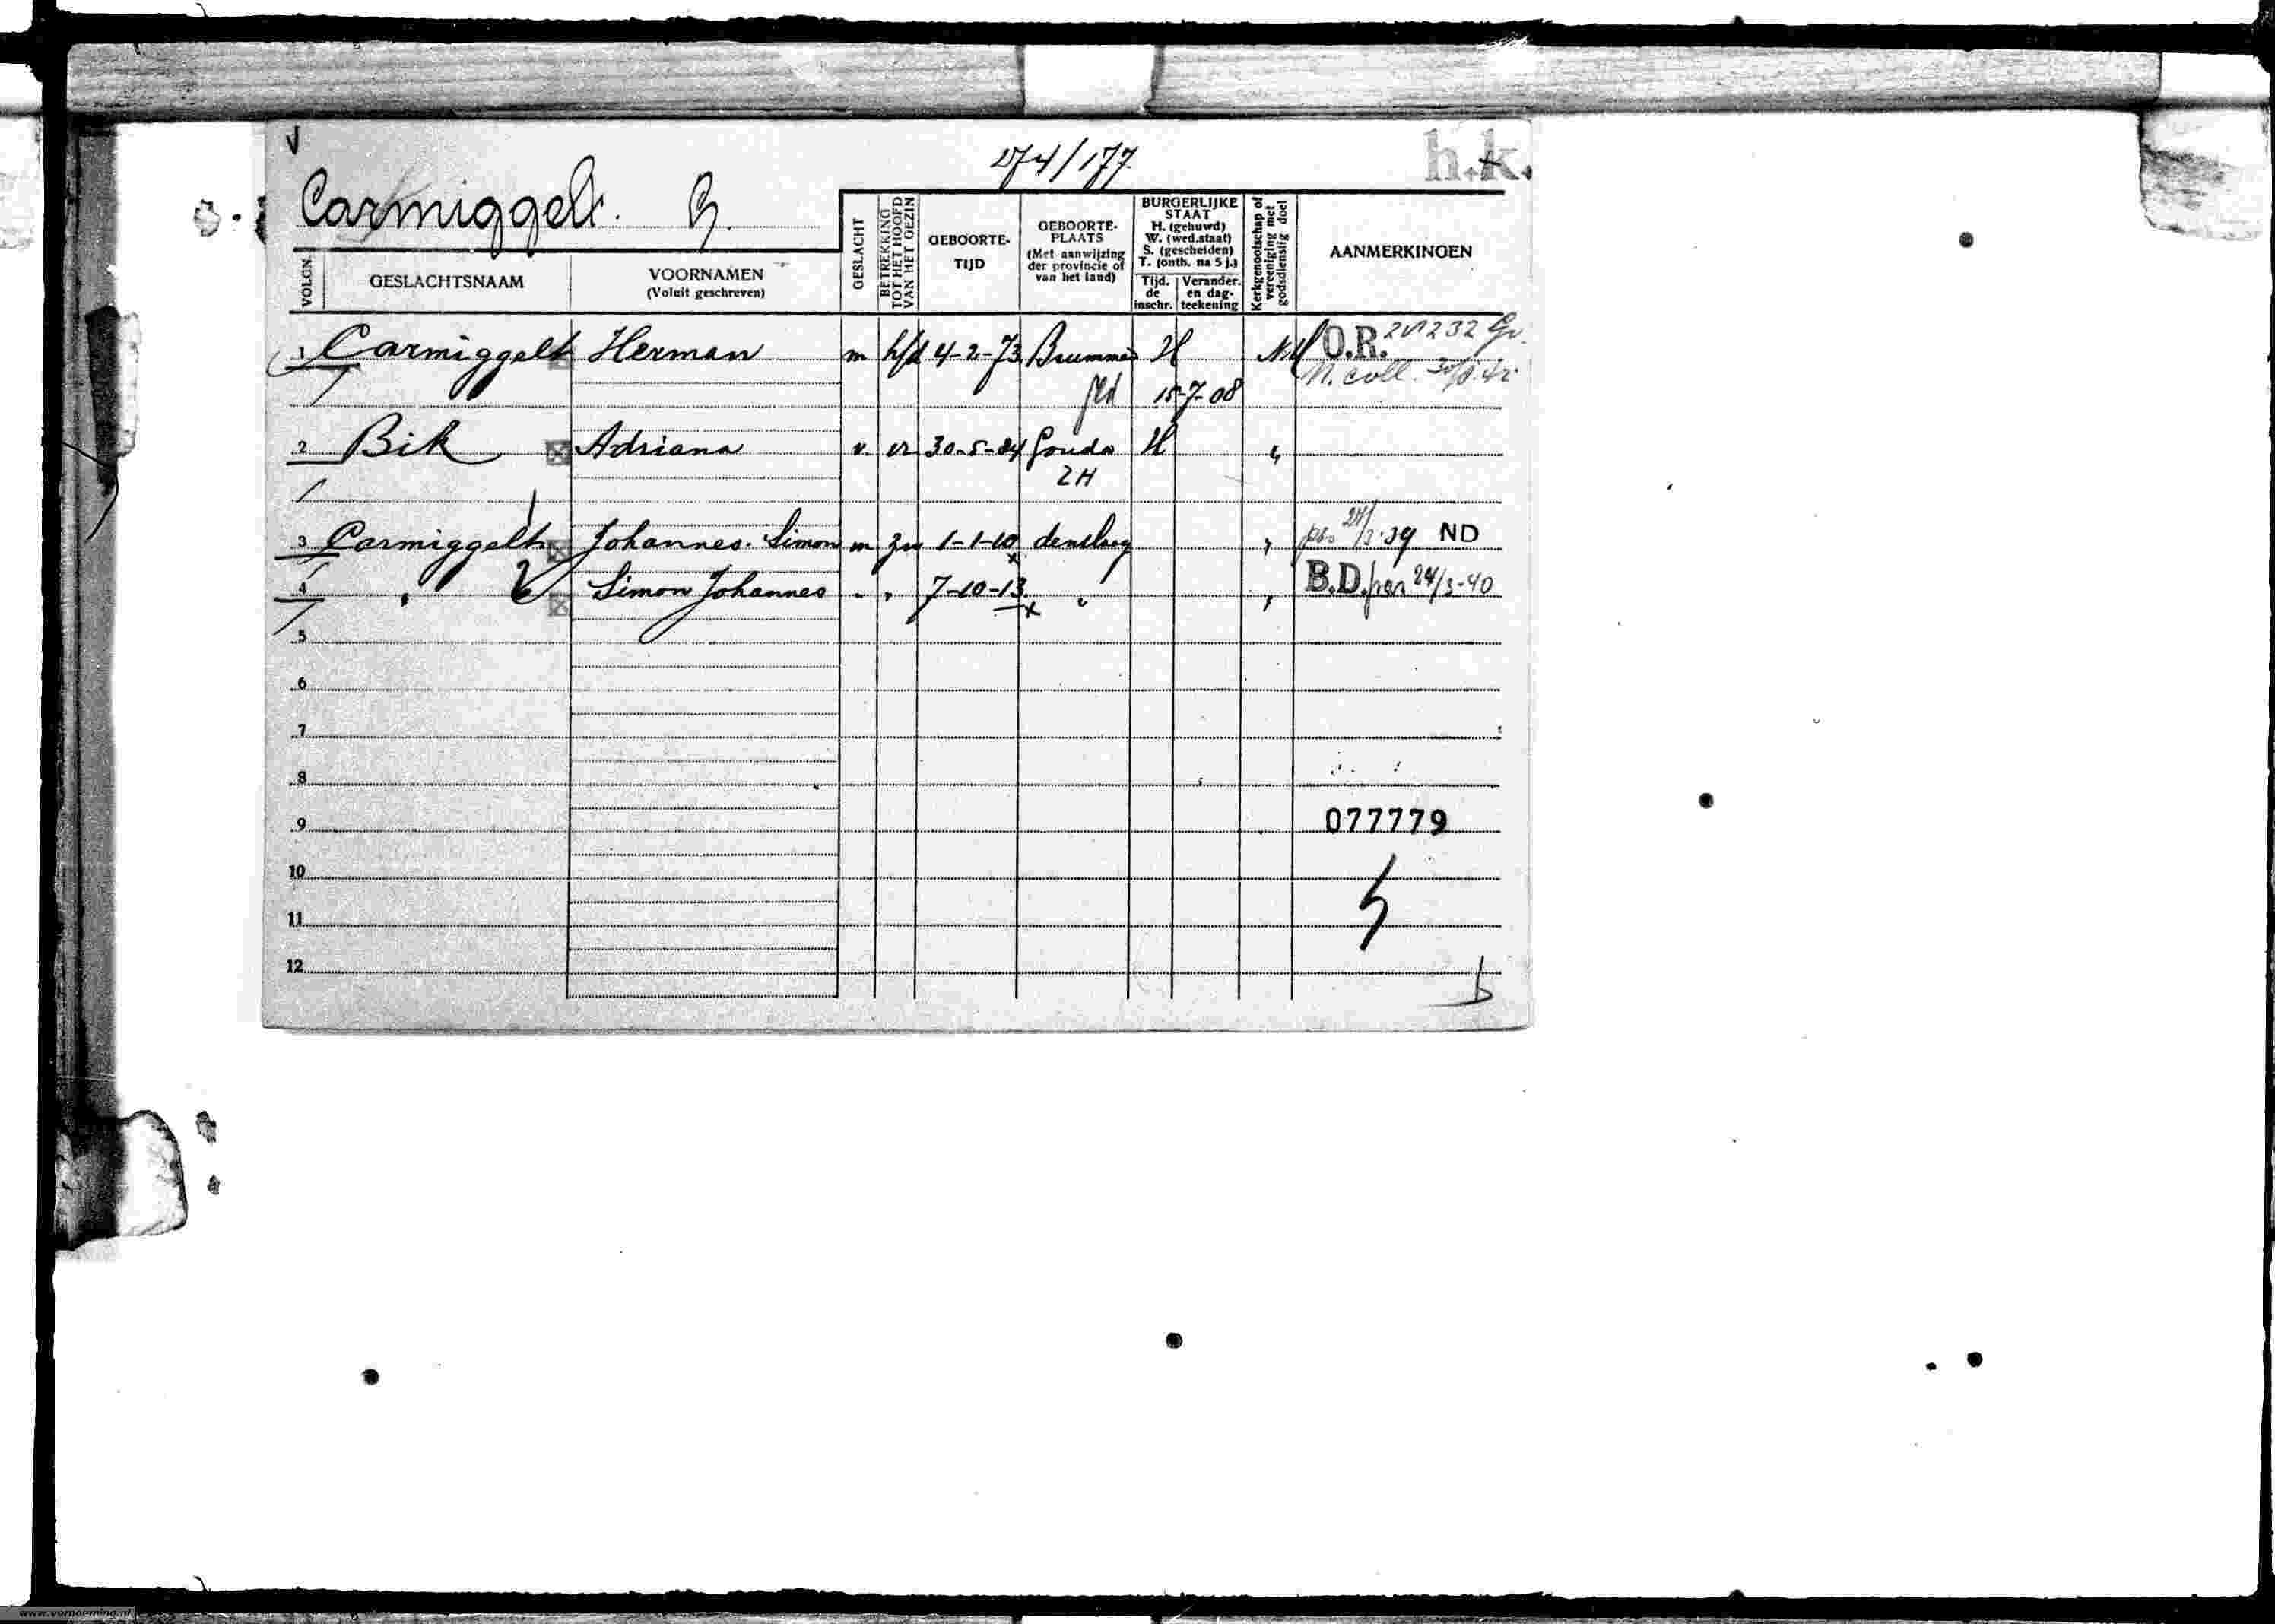 274/177
h.k.
Carmiggelt. H.
VOLGN.
GESLACHTSNAAM
VOORNAMEN
(Voluit geschreven)
GESLACHT
BETREKKING
TOT HET HOOFD
VAN HET GEZIN
GEBOORTE-
TIJD
GEBOORTE-
PLAATS
(Met aanwijzing
der provincie of
van het land)
BURGERLIJKE
STAAT
H. (gehuwd)
W. (wed.staat)
S. (gescheiden)
T. (onth. na 5 j.)
Tijd.
de
inschr.
Verander.
en dag-
teekening
Kerkgenootschap of
vereeniging met
godsdienstig doel
AANMERKINGEN
1 Carmiggelt Herman m hfd 4-2-73 Brummen H NH O.R.
N. coll.
Gld 15-7-08
2 Bik Adriana v. vr. 30-5-84 Gouda H "
ZH
3 Carmiggelt Johannes Simon m zn 1-1-10 den Haag " 39 ND
4 " Simon Johannes " " 7-10-13 " " B.D. pen 24/3-40
5
6
7
8
077779
9
10
11
12
www.vernoeming.nl